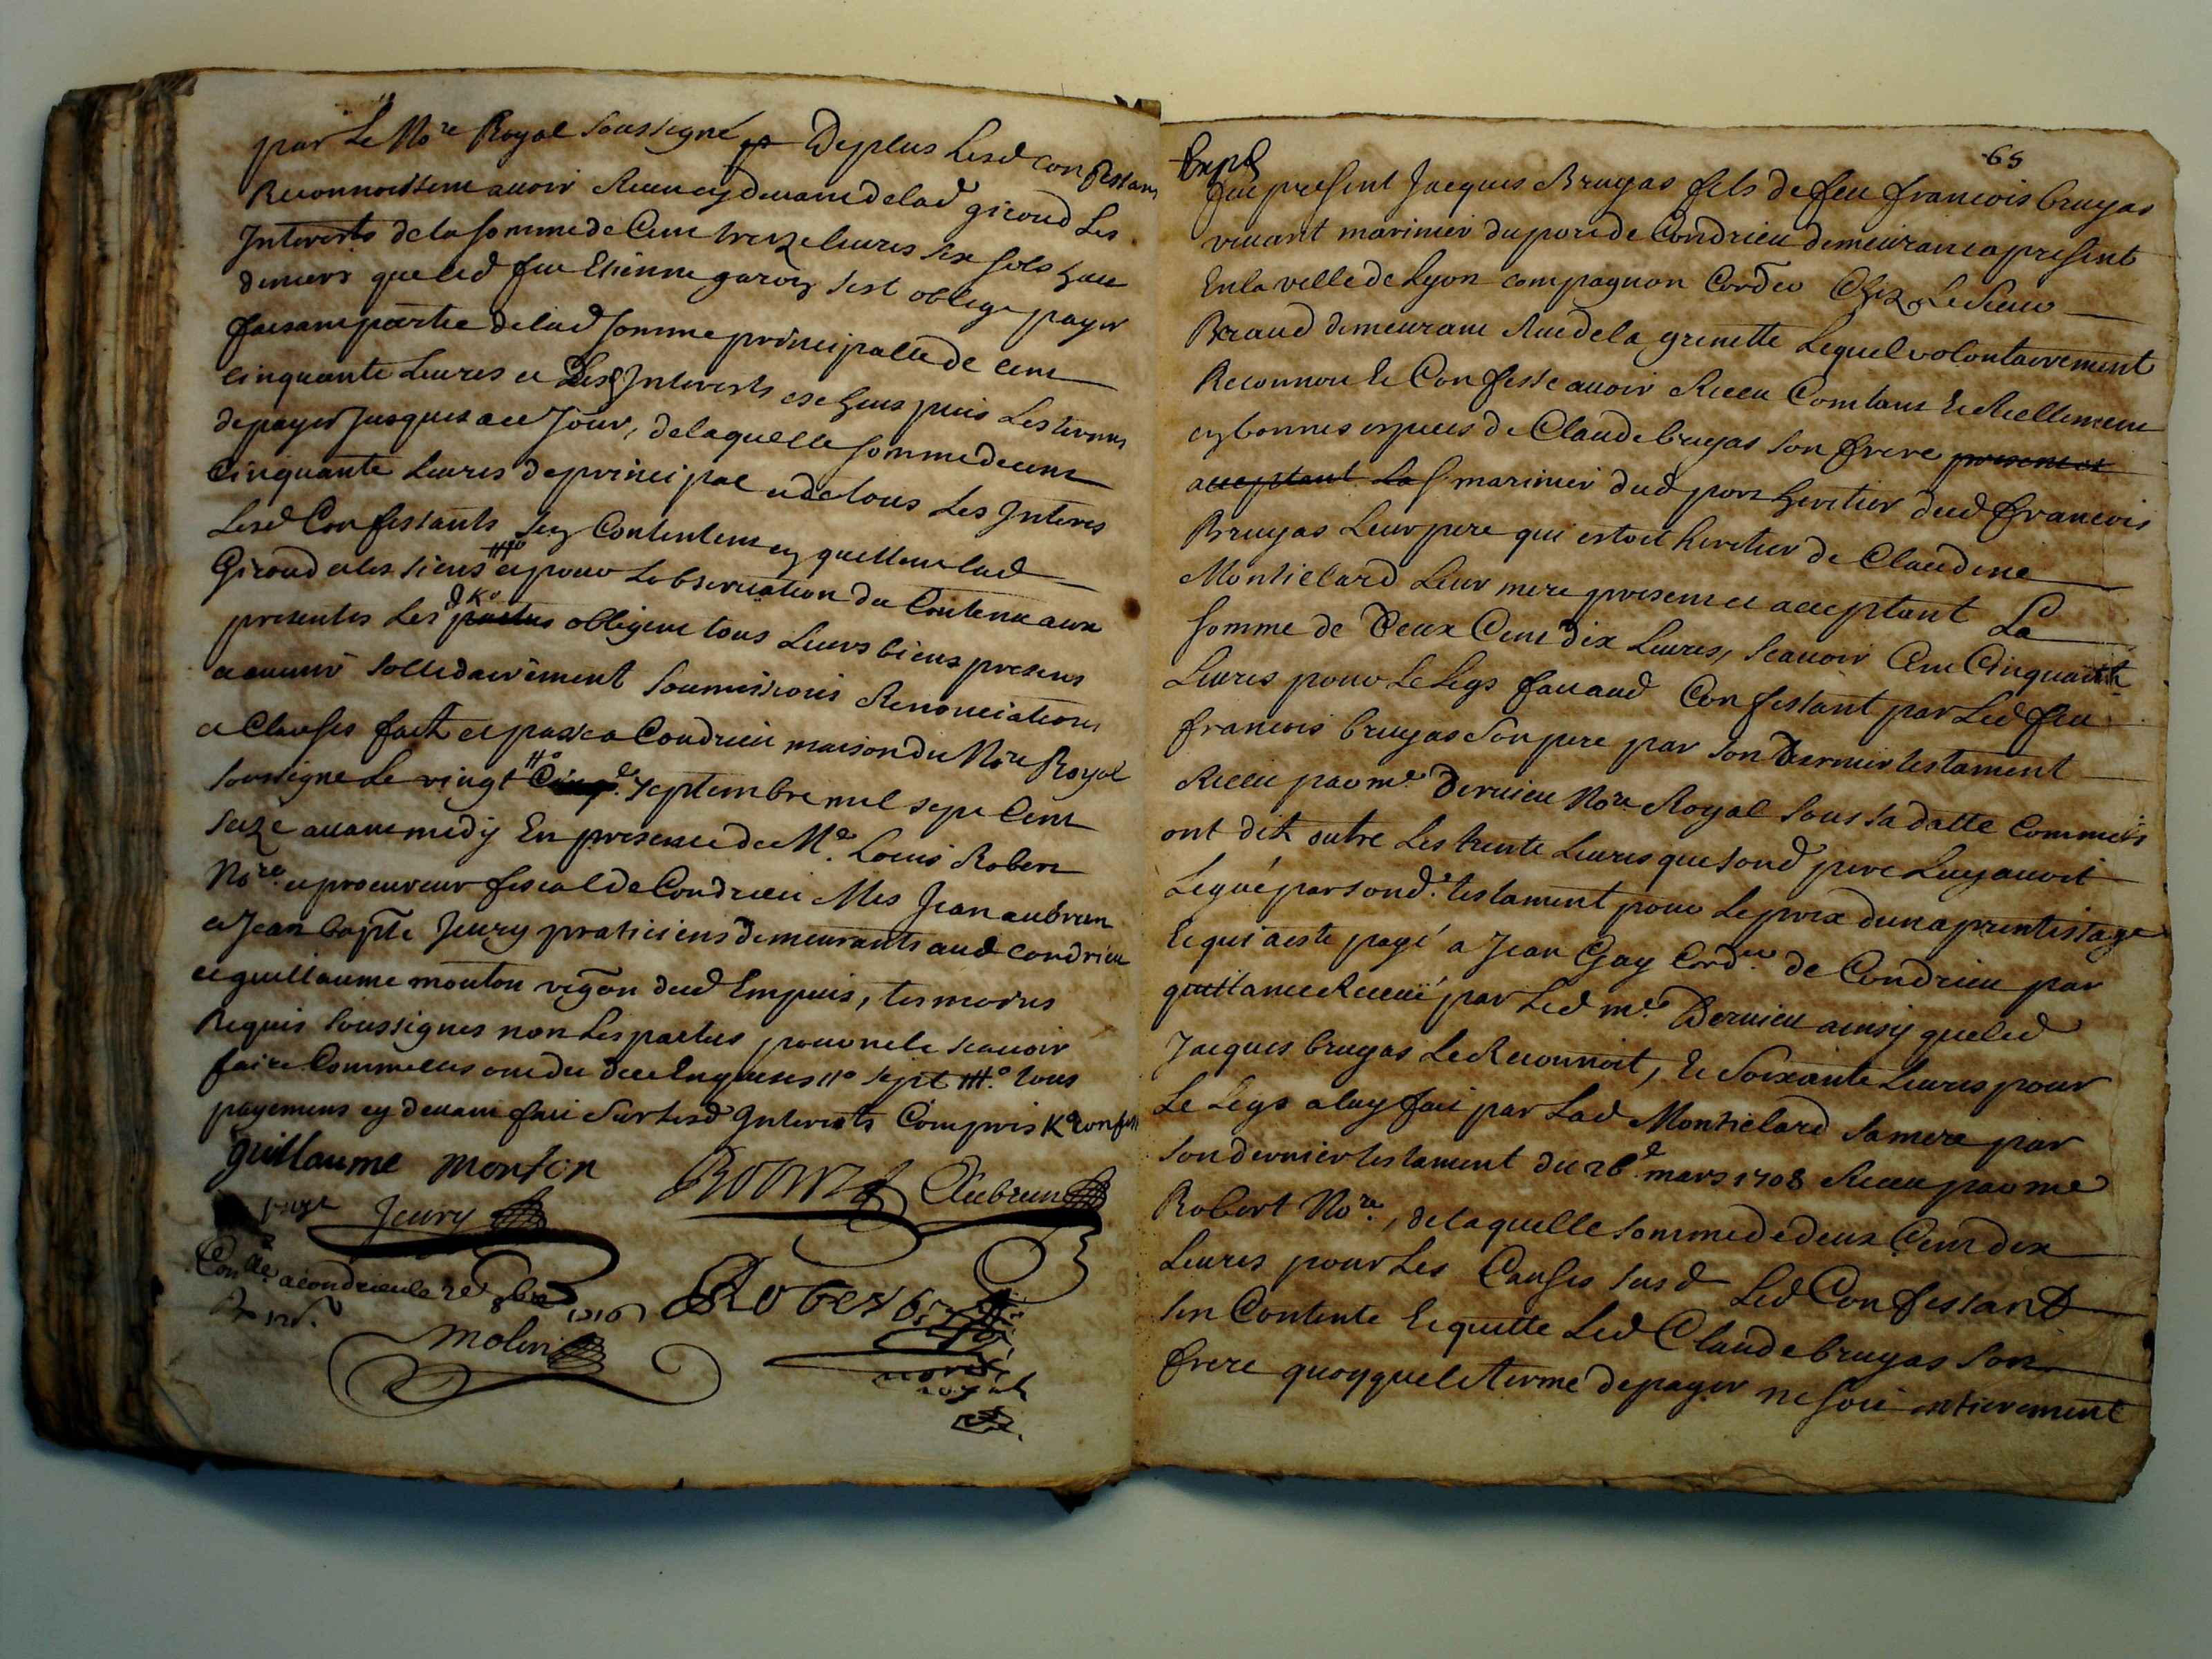 par Le No.re Royal soussigné et Deplus Lesd confessans
Reconnoissent auoir Receu cy deuant de lad giroud Les
Interests de la somme de Cent treize liures six sols huit
deniers que led feu Etienne garon sest obligé payer
faisant partie de lad somme principalle de cent
cinquante Liures et Desd Interests escheus puis Les termes
de payer Jusques a ce Jour, de laquelle somme de cent
Cinquante Liures de principal et de tous Les Interes
Lesd Confessants sen Contentent en quittent lad
Giroud et les siens et pour Lobseruation du Contenu aux
presentes Les parties obligent tous Leurs biens presens
et auenir sollidairement soumissions Renonciations
et Clauses fait et passé a Condrieu maison du No.re Royal
soussigne Le vingt Cinq.e septembre mil sept Cent
seize auant midy En presence de M.e Louis Robert
No.re et procureur fiscal de Condrieu Mes Jean aubrun
et Jean bapte Jeury praticiens demeurants aud condrieu
et guillaume mouton vigon dud Empuis, tesmoins
Requis soussignes non Les parties pour ne le scauoir
faire Comme elles ont dit de ce Enquises 11° sept 111.° tous
payemens cy deuant fait sur lesd Interests Compris K° confess
guillaume monton
Jeury
Aubrun
Con.lle a condrieu le 2e 8bre 1716
Robert
molin
no.re
royal
65
Expé
fut present Jacques Bruyas fils de feu francois bruyas
viuant marinier du port de Condrieu demeurant a present
En la ville de Lyon compagnon Cord.r Chez Le sieur
Braud demeurant Rue de la grenette Lequel volontairement
Reconnoit Et Confesse auoir Receu Comtant Et Reellement
en bonnes especes de Claude bruyas son frere present et
acceptant La s marinier dud port heritier dud francois
Bruyas Leur pere qui estoit heritier de Claudine
Montielard Leur mere present et acceptant La
somme de Deux Cent dix Liures, scauoir Cent Cinquante
Liures pour Le Legs fait aud Confessant par Led feu
francois bruyas son pere par son Dernier testament
Receu par m.e Dernieu No.re Royal sous sa datte Comme ils
ont dit outre Les trente Liures que sond pere Luy auoit
Legué par sond.t testament pour Le prix dun aprentissage
Et qui a esté payé a Jean Gay Cord.er de Condrieu par
quittance Receuë par Led m.e Dernieu ainsy que led
Jacques bruyas Le Reconnoit, Et soixante Liures pour
Le Legs a luy fait par Lad Montielard sa mere par
son dernier testament du 26.e mars 1708 Receu par me
Robert No.re, de laquelle somme de deux Cent dix
Liures pour Les Causes susd Led Confessant
sen Contente Et quitte Led Claude bruyas son
frere quoyque le terme de payer ne soit entierement